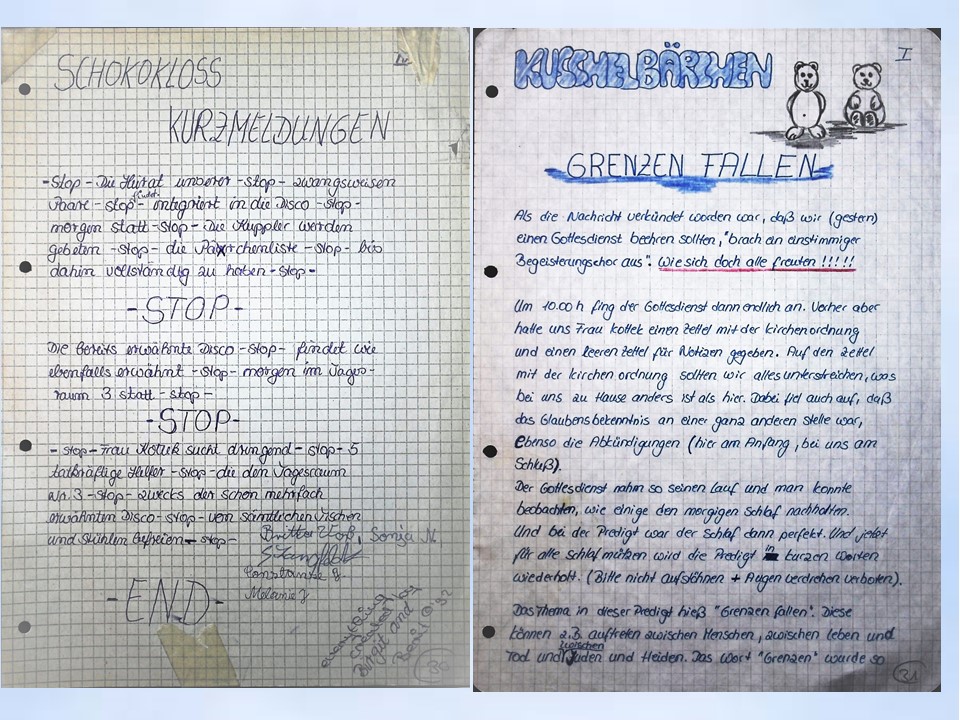 SCHOKOKLOSS
IV
KURZMELDUNGEN
-Stop- Die Heirat unserer -stop- zwangsweisen
Paare -stop- integriert in die Disco -stop-
morgen statt -stop- Die Kuppler werden
gebeten -stop- die Pärchenliste -stop- bis
dahin vollständig zu haben -stop-
-STOP-
Die bereits erwähnte Disco -stop- findet wie
ebenfalls erwähnt -stop- morgen im Tages-
raum 3 statt -stop-
-STOP-
- stop - Frau Kottek sucht dringend - stop - 5
tatkräftige Helfer -stop- die den Tagesraum
Nr. 3 -stop- zwecks der schon mehrfach
erwähnten Disco -stop- von sämtlichen Tischen
und Stühlen befreien - stop -
Britta Sonja N.
Constanze g.
Melanie J
-END-
everything
created by
Birgit and
Berit © 92
30
KUSCHELBÄRCHEN
I
GRENZEN FALLEN
Als die Nachricht verkündet worden war, daß wir (gestern)
einen Gottesdienst beehren sollten, "brach ein einstimmiger
Begeisterungschor aus". Wie sich doch alle freuten !!!!!
Um 10.00 h fing der Gottesdienst dann endlich an. Vorher aber
hatte uns Frau Kottek einen Zettel mit der Kirchenordnung
und einen leeren Zettel für Notizen gegeben. Auf den Zettel
mit der Kirchen ordnung sollten wir alles unterstreichen, was
bei uns zu Hause anders ist als hier. Dabei fiel auch auf, daß
das Glaubensbekenntnis an einer ganz anderen Stelle war,
ebenso die Abkündigungen (hier am Anfang, bei uns am
Schluß).
Der Gottesdienst nahm so seinen Lauf und man konnte
beobachten, wie einige den morgigen Schlaf nachholten.
Und bei der Predigt war der Schlaf dann perfekt. Und jetzt
für alle Schlaf mützen wird die Predigt in kurzen Worten
wiederholt. (Bitte nicht aufstöhnen + Augen verdrehen verboten).
Das Thema in dieser Predigt hieß "Grenzen fallen". Diese
können z.B. auftreten zwischen Menschen, zwischen Leben und
Tod und zwischen Juden und Heiden. Das Wort "Grenzen" wurde so
31